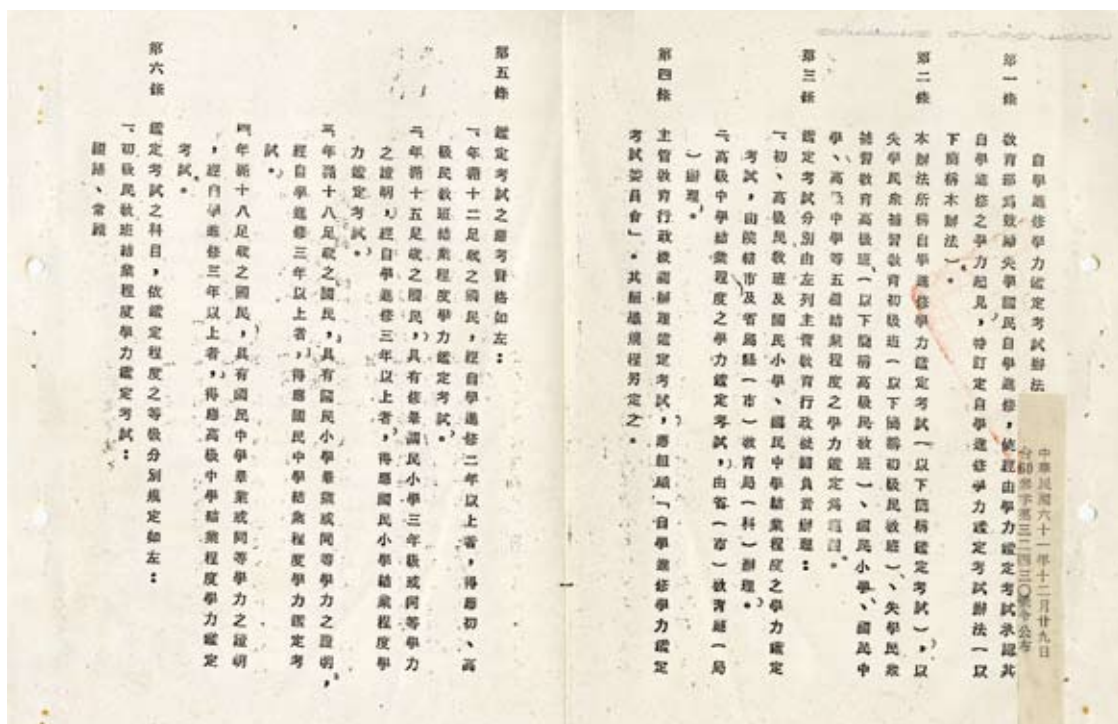 自學進修學力鑑定考試辦法
中華民國六十一年十二月廿九日
台60參字第三二四三〇號令公布
第一條　教育部為鼓勵失學國民自學進修,使經由學力鑑定考試承認其
自學進修之學力起見,特訂定自學進修學力鑑定考試辦法(以
下簡稱本辦法)。
第二條　本辦法所稱自學進修學力鑑定考試(以下簡稱鑑定考試),以
失學民眾補習教育初級班(以下簡稱初級民教班)、失學民眾
補習教育高級班(以下簡稱高級民教班)、國民小學、國民中
學、高級中學等五種結業程度之學力鑑定為範圍。
第三條　鑑定考試分別由左列主管教育行政機關負責辦理:
一、初、高級民教班及國民小學、國民中學結業程度之學力鑑定
考試,由院轄市及省屬縣(市)教育局(科)辦理。
二、高級中學結業程度之學力鑑定考試,由省(市)教育廳(局
)辦理。
第四條　主管教育行政機關辦理鑑定考試,應組織「自學進修學力鑑定
考試委員會」。其組織規程另定之。
第五條　鑑定考試之應考資格如左:
一、年滿十二足歲之國民,經自學進修二年以上者,得應初、高
級民教班結業程度學力鑑定考試。
二、年滿十五足歲之國民,具有修畢國民小學三年級或同等學力
之證明,經自學進修三年以上者,得應國民小學結業程度學
力鑑定考試。
三、年滿十八足歲之國民,具有國民小學畢業或同等學力之證明,
經自學進修三年以上者,得應國民中學結業程度學力鑑定考
試。
四、年滿十八足歲之國民,具有國民中學畢業或同等學力之證明
,經自學進修三年以上者,得應高級中學結業程度學力鑑定
考試。
第六條　鑑定考試之科目,依鑑定程度之等級分別規定如左:
一、初級民教班結業程度學力鑑定考試:
國語、常識